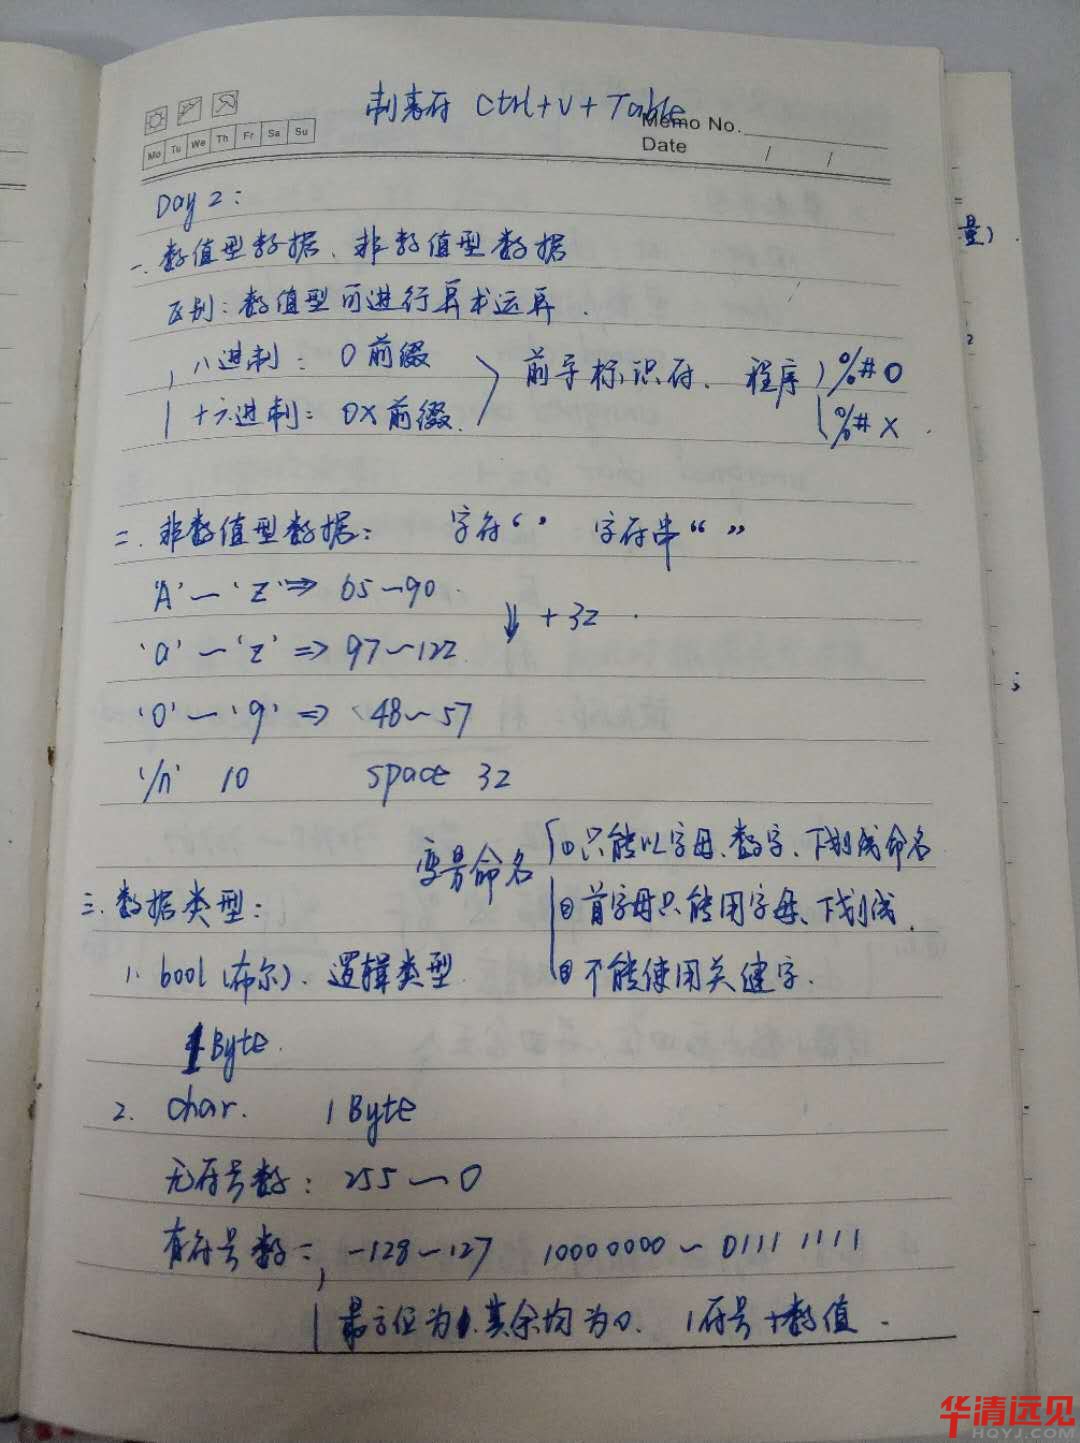 制表符 Ctrl+V+Table
Memo No.
Mo Tu We Th Fr Sa Su
Date / /
Day 2:
一、数值型数据、非数值型数据
区别:数值型可进行算术运算.
八进制: 0前缀
前导标识符. 程序 %#o
十六进制: 0x前缀.
%#x.
二. 非数值型数据: 字符‘ ’ 字符串“ ”
'A'~'Z' => 65~90.
↓ +32.
'a'~'z' => 97~122.
'0'~'9' => 48~57
'/n' 10 space 32
变量命名 ①只能以字母、数字、下划线命名
三. 数据类型:
②首字母只能用字母、下划线.
1. bool(布尔). 逻辑类型.
③不能使用关键字.
1Byte.
2. char. 1Byte
无符号数: 255~0
有符号数: -128~127 10000000~01111111
最高位为1.其余均为0. 1符号+数值.
量)
华清远见
HQYJ.COM